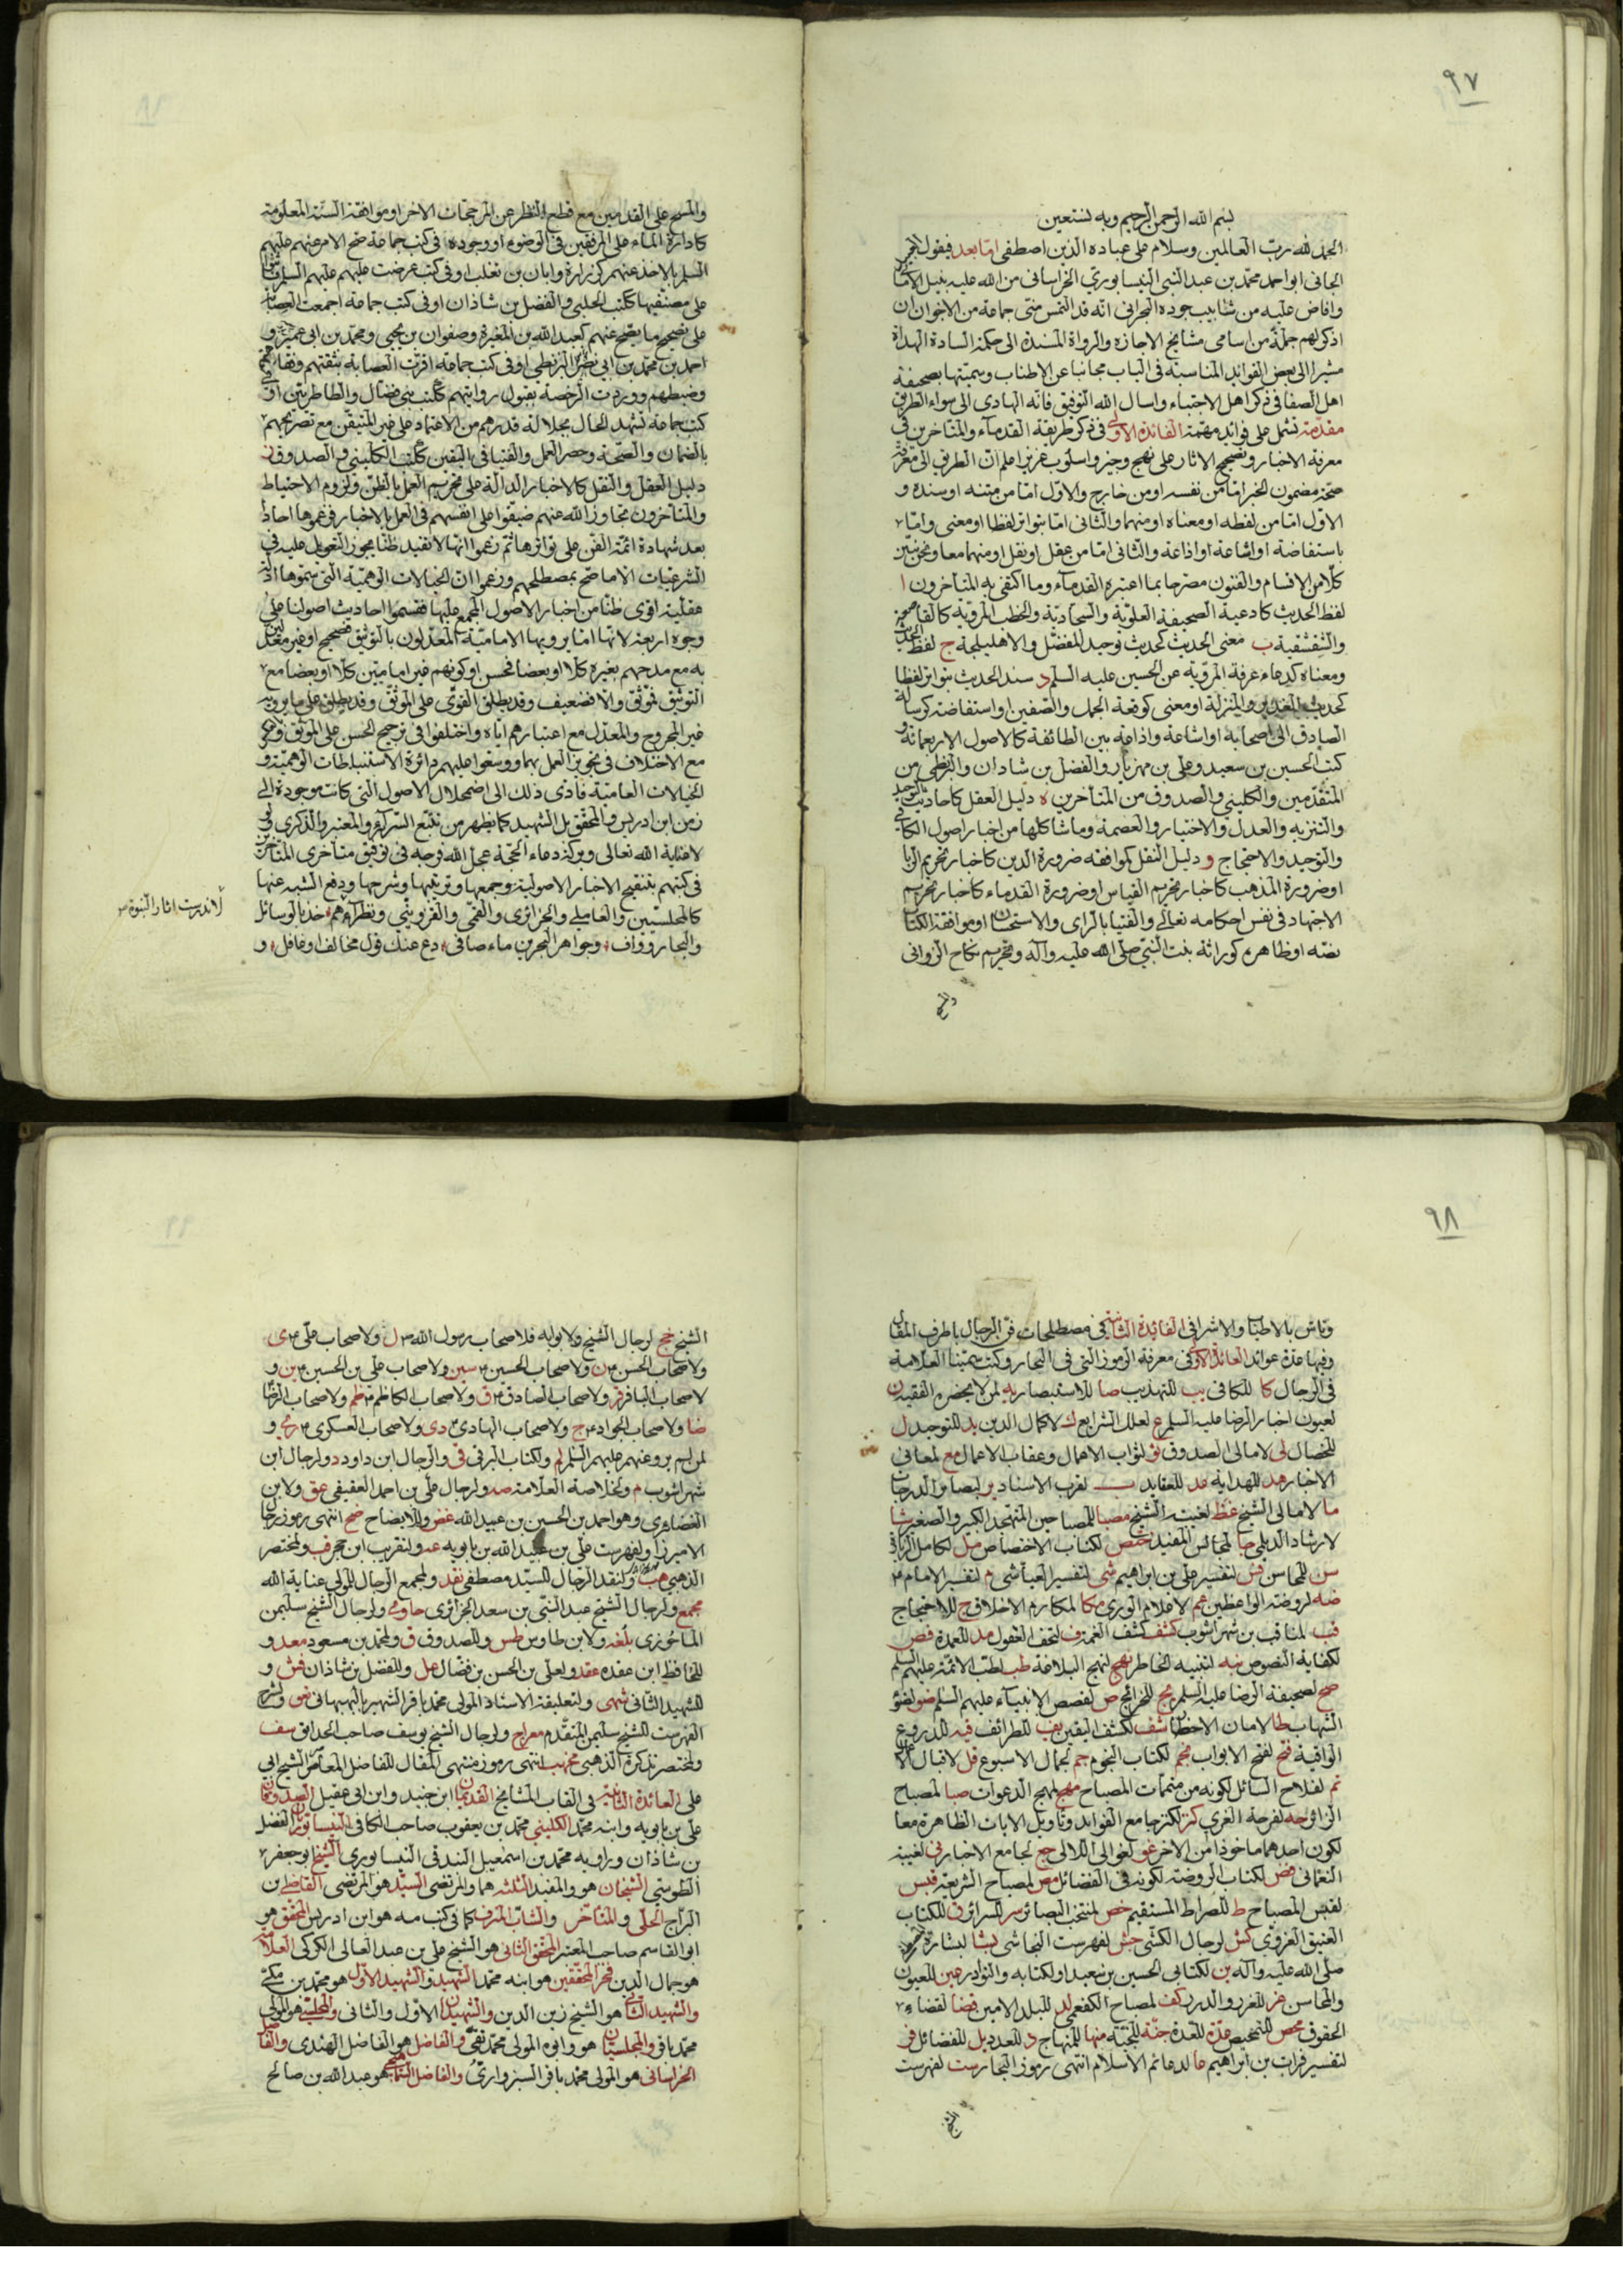 ٩٧
بسم الله الرحمن الرحيم وبه نستعين
الحمد لله رب العالمين وسلام على عباده الذين اصطفى اما بعد فيقول المجرم
الجاني ابو احمد محمد بن عبد النبي النيسابوري الخراساني من الله عليه بنيل الاماني
وافاض عليه من شابيب جوده البحراني انه قد التمس مني جماعة من الاخوان ان
اذكر لهم جملة من اسامي مشايخ الاجازه والرواة المسندة الى حكمة السادة الهداة
مشيرا الى بعض الفوايد المناسبة في الباب مجانبا عن الاطناب وسميتها بصحيفة
اهل الصفا في ذكر اهل الاجتباء واسال الله التوفيق فانه الهادي الى سواء الطريق
مقدمة تشمل على فوايد مهمة الفائدة الاولى في ذكر طريقة القدماء والمتاخرين في
معرفة الاخبار وتصحيح الاثار على نهج وجيز واسلوب عزيز اعلم ان الطريق الى معرفة
صحة مضمون الخبر اما من نفسه او من خارج والاول اما من متنه او سنده و
الاول اما من لفظه او معناه او منهما والثاني اما بتواتر لفظا او معنى واما
باستفاضة او اشاعة او اذاعة والثاني اما من عقل او نقل او منهما معا ونحن نبين
كلا من الاقسام والفنون مصرحا بما اعتبره القدماء وما اكتفى به المتأخرون ا
لفظ الحديث كادعية الصحيفة العلوية والسجادية والخطب المروية كالقاصعة
والشقشقية ب معنى الحديث كحديث توحيد المفضل والاهليلجة ج لفظ الحديث
ومعناه كدعاء عرفة المروية عن الحسين عليه السلم د سند الحديث بتواتر لفظا
كحديث الغدير والمنزلة او معنى كوقعة الجمل والصفين او استفاضة كرسالة
الصادق الى اصحابه او اشاعة واذاعة بين الطائفة كالاصول الاربعمائة و
كتب الحسين بن سعيد وعلي بن مهزيار والفضل بن شاذان والبزنطي من
المتقدمين والكليني والصدوق من المتأخرين ه دليل العقل كاحاديث التوحيد
والتنزيه والعدل والاختيار والعصمة وما شاكلها من اخبار اصول الكافي
والتوحيد والاحتجاج و دليل النقل كموافقة ضرورة الدين كاخبار تحريم الربا
او ضرورة المذهب كاخبار تحريم القياس او ضرورة القدماء كاخبار تحريم
الاجتهاد في نفس احكامه تعالى والفتيا بالراى والاستحسان او موافقة الكتاب
نصه او ظاهره كوراثة بنت النبي صلى الله عليه وآله وتحريم نكاح الزواني
والمسح
والمسح على القدمين مع قطع النظر عن المرجحات الاخر او موافقة السنة المعلومة
كادارة الماء على المرفقين في الوضوء او وجوده في كتب جماعة صح الامر عنهم عليهم
السلم بالاخذ عنهم كزرارة وابان بن تغلب او في كتب عرضت عليهم عليهم السلم
على مصنفيها ككتب الحلبي والفضل بن شاذان او في كتب جماعة اجمعت العصابة
على تصحيح ما يصح عنهم كعبد الله بن المغيرة وصفوان بن يحيى ومحمد بن ابي عمير و
احمد بن محمد بن ابي نصر البزنطي او في كتب جماعة اقرت العصابة بثقتهم وفقاهتهم
وضبطهم ووردت الرخصة بقبول روايتهم ككتب بني فضال والطاطريين او في
كتب جماعة تشهد الحال بجلالة قدرهم من الاعتماد على غير المتيقن مع تصريحهم
بالضمان والصحة وحصر العمل والفتيا في اليقين ككتب الكليني والصدوق ز
دليل العقل والنقل كالاخبار الدالة على تحريم العمل بالظن ولزوم الاحتياط
والمتأخرون تجاوز الله عنهم ضيقوا على انفسهم في العمل بالاخبار فزعموها احادا
بعد شهادة ائمة الفن على تواترها ثم زعموا انها لا تفيد ظنا يجوز التعويل عليه في
الشرعيات الا ما صح بمصطلحهم وزعموا ان الخيالات الوهمية التي سموها ادلة
عقلية اقوى ظنا من اخبار الاصول المجمع عليها فقسموا احاديث اصولنا على
وجوه اربعة لانها اما يرويها الامامية المعدلون بالتوثيق فصحيح او غير معدلين
به مع مدحهم بغيره كلا او بعضا فحسن او كونهم غير اماميين كلا او بعضا مع
التوثيق فموثق والا فضعيف وقد يطلق القوي على الموثق وقد يطلق على ما يرويه
غير المجروح والمعدل مع اعتبارهم اياه واختلفوا في ترجيح الحسن على الموثق وعكسه
مع الاختلاف في تجويز العمل بهما ووسعوا عليهم دائرة الاستنباطات الوهمية و
الخيالات العامية فادى ذلك الى اضمحلال الاصول التي كانت موجودة الى
زمن ابن ادريس والمحقق بل الشهيد كما يظهر من تتبع السرائر والمعتبر والذكرى لو
لا عناية الله تعالى وبركة دعاء الحجة عجل الله فرجه في توفيق متأخرى المتأخرين
في كتبهم بتنقيح الاخبار الاصولية وجمعها وترتيبها وشرحها ودفع الشبه عنها
كالمجلسيين والعاملي والجزائري والقمي والقزويني ونظرائهم خذ بالوسائل
والبحار وواف وجواهر البحرين ماء صافي دع عنك قول مخالف او غافل و
لاندرست اثار النبوة
٩٨
الفائدة الثانية في مصطلحات فن الرجال باطراف المقال
وفيها عدة عوائد العائدة الاولى في معرفة الرموز التي في البحار وكتب العلامة
في الرجال كا للكافي يب للتهذيب صا للاستبصار يه لمن لا يحضره الفقيه ن
لعيون اخبار الرضا عليه السلم ع لعلل الشرايع ك لاكمال الدين يد للتوحيد ل
للخصال لى لامالى الصدوق ثو لثواب الاعمال وعقاب الاعمال مع لمعاني
الاخبار هد للهداية عد للعقايد ب لقرب الاسناد ير لبصائر الدرجات
ما لامالى الشيخ غط لغيبة الشيخ مصبا للمصباحين المتهجد الكبير والصغير شا
لارشاد جا لمجالس المفيد ختص لكتاب الاختصاص مل لكامل الزيارة
سن للمحاسن فس لتفسير علي بن ابراهيم شى لتفسير العياشى م لتفسير الامام
ضه لروضة الواعظين عم لاعلام الورى مكا لمكارم الاخلاق ج للاحتجاج
قب لمناقب بن شهراشوب كشف لكشف الغمة ف لتحف العقول مد للعمدة نص
لكفاية النصوص نبه لتنبيه الخاطر نهج لنهج البلاغة طب لطب الائمة عليهم السلم
صح لصحيفة الرضا عليه السلم يج للخرائج ص لقصص الانبياء عليهم السلم ضو لضوء
الشهاب طا لامان الاخطار شف لكشف اليقين يف للطرائف قيه للدروع
الواقية فتح لفتح الابواب نجم لكتاب النجوم جم لجمال الاسبوع قل لاقبال
تم لفلاح السائل لكونه من متممات المصباح مهج لمهج الدعوات صبا لمصباح
الزائر حه لفرحة الغري كنز لكنز جامع الفوايد وتأويل الايات الظاهرة معا
لكون احدهما ماخوذا من الاخر غو لغوالى اللالى جع لجامع الاخبار نى لغيبة
النعماني فض لكتاب الروضة لكونه في الفضائل مص لمصباح الشريعة قبس
لقبس المصباح ط للصراط المستقيم خص لمنتخب البصائر سر للسرائر ق للكتاب
العتيق الغروي كش لرجال الكشي جش لفهرست النجاشي بشا لبشارة المصطفى
صلى الله عليه وآله ين لكتابي الحسين بن سعيد او لكتابه والنوادر عين للعيون
والمحاسن غر للغرر والدرر كف لمصباح الكفعمي لد للبلد الامين قضا لقضاء
الحقوق محص للتمحيص عدة للعدة جنة للجنة منها للمنهاج د للعدد يل للفضائل فر
لتفسير فرات بن ابراهيم عا لدعائم الاسلام انتهى رموز البحار ست لفهرست
الشيخ
الشيخ جخ لرجال الشيخ ولابوابه فلاصحاب رسول الله ل ولاصحاب علي ى
ولاصحاب الحسن ن ولاصحاب الحسين سين ولاصحاب علي بن الحسين ين و
لاصحاب الباقر قر ولاصحاب الصادق ق ولاصحاب الكاظم ظم ولاصحاب الرضا
ضا ولاصحاب الجواد ج ولاصحاب الهادى دى ولاصحاب العسكرى رى و
لمن لم يرو عنهم عليهم السلم لم ولكتاب البرقي قى والرجال ابن داود د ولرجال ابن
شهراشوب م ولخلاصة العلامة صه ولرجال علي بن احمد العقيقي عق ولابن
الغضايرى وهو احمد بن الحسين بن عبيد الله غض وللايضاح ضح انتهى رموز رجال
الاميرزا ولفهرست علي بن عبيد الله بن بابويه عه ولتقريب ابن حجر قب ولمختصر
الذهبي هب ولنقد الرجال للسيد مصطفى نقد ولمجمع الرجال للمولى عناية الله
مجمع ولرجال الشيخ عبد النبي بن سعد الجزائرى حاوى ولرجال الشيخ سليمن
الماحوزى بلغه ولابن طاوس طس وللصدوق ق ولمحمد بن مسعود معد و
للحافظ ابن عقده عقد ولعلي بن الحسن بن فضال عل وللفضل بن شاذان فش و
للشهيد الثاني شهى ولتعليقة الاستاد المولى محمد باقر الشهير بالبهبهاني ولشرح
الفهرست للشيخ سليمن المتقدم معراج ولرجال الشيخ يوسف صاحب الحدائق سف
ولمختصر تذكرة الذهبي مخهب انتهى رموز منتهى المقال للفاضل المعاصر الشيخ ابي
على العائدة الثانية في القاب المشايخ القديمان ابن جنيد وابن ابي عقيل الصدوقان
علي بن بابويه وابنه محمد الكليني محمد بن يعقوب صاحب الكافي النيسابوري الفضل
بن شاذان وراويه محمد بن اسمعيل البندقي النيسابوري الشيخ ابو جعفر
الطوسي الشيخان هو والمفيد الثلثة هما والمرتضى السيد هو المرتضى القاضي ابن
البراج الحلي والمتأخر والشاب المترف كما في كتب مه هو ابن ادريس المحقق هو
ابو القاسم صاحب المعتبر المحقق الثاني هو الشيخ علي بن عبد العالى الكركى العلامة
هو جمال الدين فخر المحققين هو ابنه محمد الشهيد والشهيد الاول هو محمد بن مكى
والشهيد الثاني هو الشيخ زين الدين والشهيدان الاول والثاني والمجلسي هو المولى
محمد باقر والمجلسيان هو وابوه المولى محمد تقى والفاضل هو الفاضل الهندى والفاضل
الخراساني هو المولى محمد باقر السبزوارى والفاضل هو عبد الله بن صالح